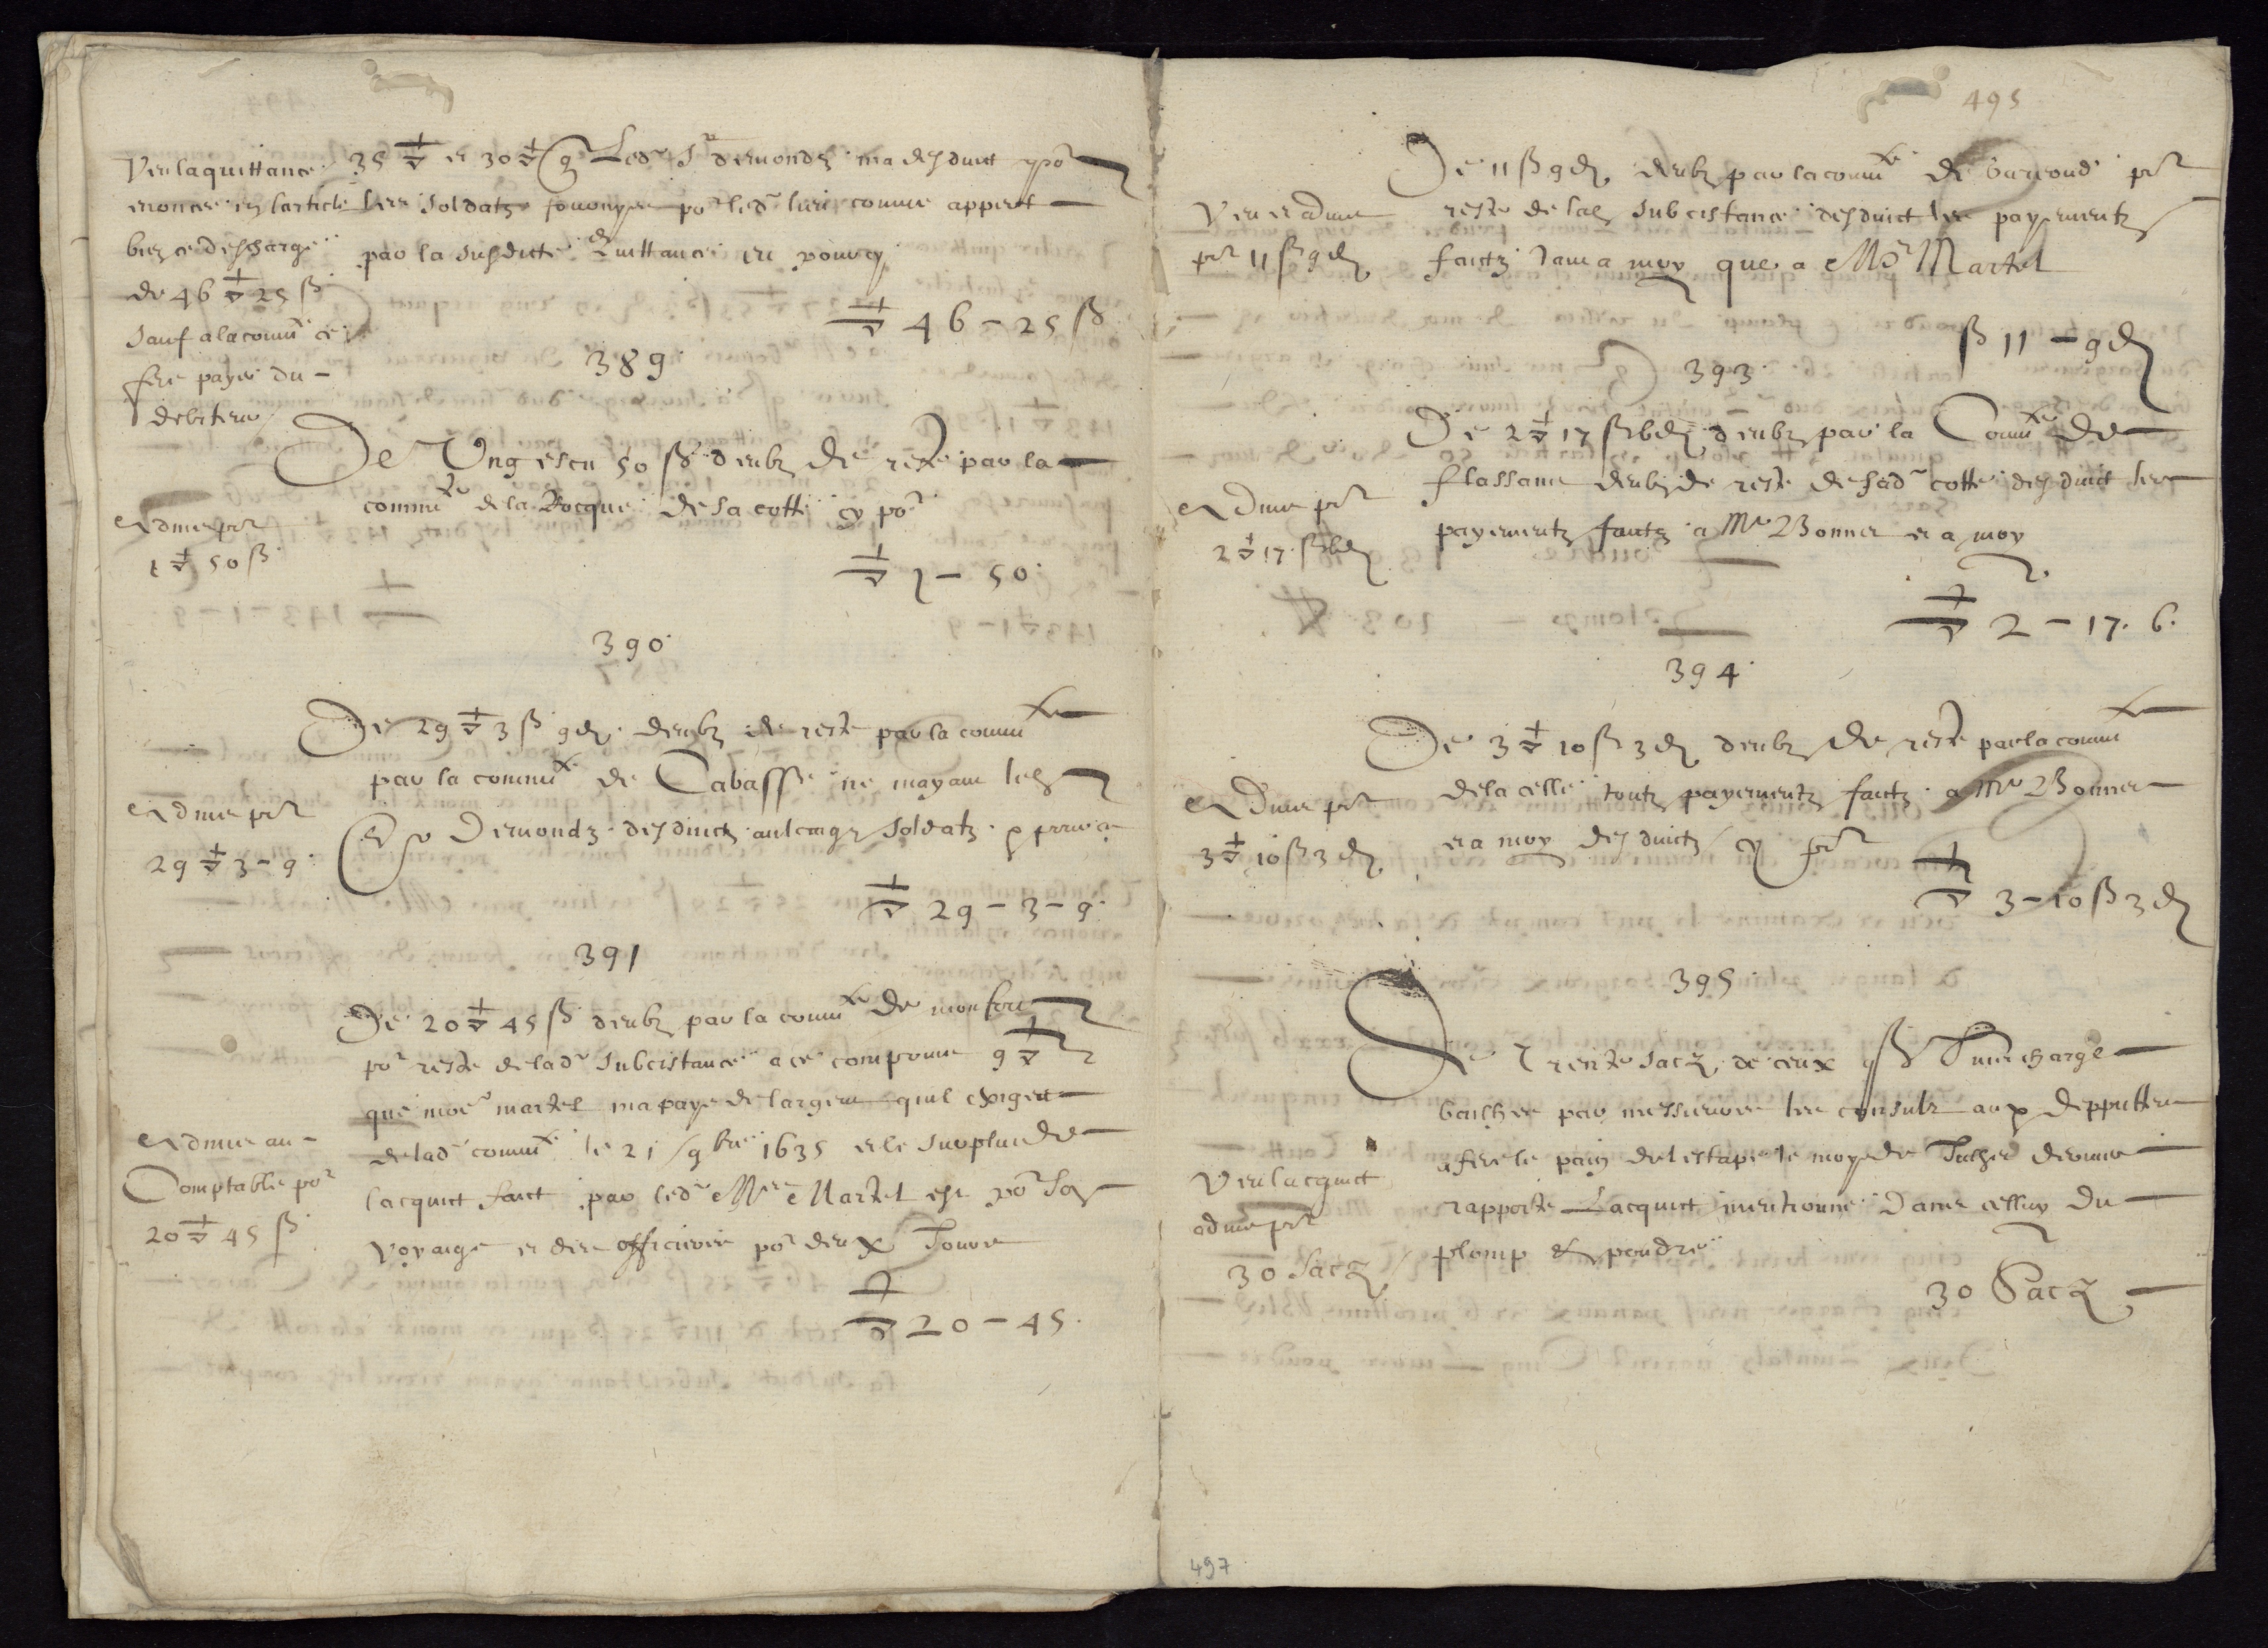 Veu la quittance
enoncee en larticle
bien ce descharge
de 46 ▽ 25 ß
sauf a la commté ce
fere payer du
debiteur
35 ▽ et 30 ▽ q Led Sr demondz ma desduict po
les soldatz po led lieu comme appert
par la susdicte quittance
▽ 46 – 25 ß
389
De Ung escu 50 ß deubz de reste par la
commté de la Rocque de sa cotte cy po
Admis pr
1 ▽ 50 ß
▽ 1 – 50
390
De 29 ▽ 3 ß 9 d deubz de reste par la commté
par la commté de Cabasse ne mayant led
Sr Demondz desduict aulcungz soldatz
Admis pr
29 ▽ 3 – 9
▽ 29 – 3 – 9
391
De 20 ▽ 45 ß deubz par la commté de monfort
po reste de lad subcistance a ce comprins 9 ▽
que mor martel ma paye de largent quil exiget
de lad commté le 21 9bre 1635 et le surplus de
lacquit faict par led Mr Martel est po son
voyaige et des officiers po deux Jours
Admis au
Comptable po
20 ▽ 45 ß
▽ 20 – 45
495
De 11 ß 9 d deubz par la commté de barjoud pr
reste de lad subcistance desduict les payementz
faictz tant a moy que a Mor Martel
Veu et admis
pr 11 ß 9 d
ß 11 – 9 d
393
De 2 ▽ 17 ß 6 d deubz par la Commté de
flassans deubz de reste de sad cotte desduict les
payementz faictz a Mr Bonnet et a moy
Admis pr
2 ▽ 17 ß 6 d
▽ 2 – 17. 6
394
De 3 ▽ 10 ß 3 d deubz de reste par la commté
de la celle toutz payementz faictz a Mr Bonnet
et a moy desduictz cy pr
Admis pr
3 ▽ 10 ß 3 d
▽ 3 – 10 ß 3 d
395
De Trente sacz de ceux charge
bailhes par messieurs les consulz aux depputtes
a fere le pain de lestape le moys de Juilhet dernier
rapporte Lacquit mentionne dans celluy du
plomp et poudre
Veu lacquict
admis pr
30 sacz
30 Sacz
497